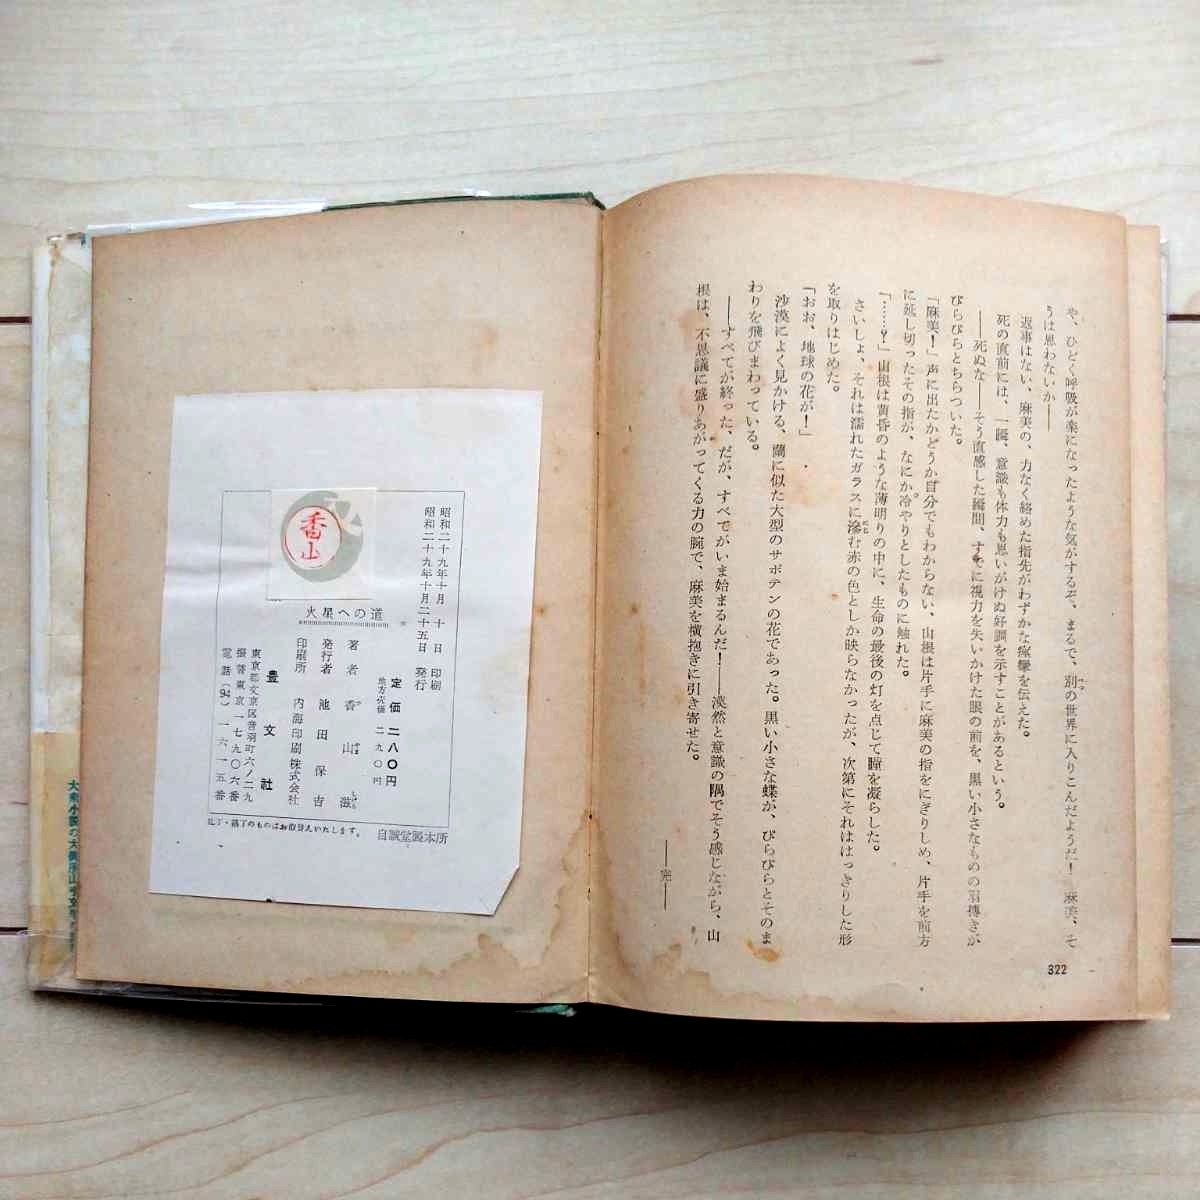 や、ひどく呼吸が楽になったような気がするぞ、まるで、別の世界に入りこんだようだ！　麻美、そ
うは思わないか――
返事はない、麻美の、力なく絡めた指先がわずかな痙攣を伝えた。
死の直前には、一瞬、意識も体力も思いがけぬ好調を示すことがあるという。
――死ぬな――そう直感した瞬間、すでに視力を失いかけた眼の前を、黒い小さなものの羽搏きが
ぴらぴらとちらついた。
「麻美！」声に出たかどうか自分でもわからない、山根は片手に麻美の指をにぎりしめ、片手を前方
に延し切ったその指が、なにか冷やりとしたものに触れた。
「……？」山根は黄昏のような薄明りの中に、生命の最後の灯を点じて瞳を凝らした。
さいしょ、それは濡れたガラスに滲む赤の色としか映らなかったが、次第にそれははっきりした形
を取りはじめた。
「おお、地球の花が！」
沙漠によく見かける、蘭に似た大型のサボテンの花であった。黒い小さな蝶が、ぴらぴらとそのま
わりを飛びまわっている。
――すべてが終った、だが、すべてがいま始まるんだ！――漠然と意識の隅でそう感じながら、山
根は、不思議に盛りあがってくる力の腕で、麻美を横抱きに引き寄せた。
――完――
322
昭和二十九年十月　十　日　印刷
昭和二十九年十月二十五日　発行
香山
火星への道
定価　二八〇円
地方売価　二九〇円
著者　香山滋
発行者　池田保吉
印刷所　内海印刷株式会社
豊文社
東京都文京区音羽町六ノ二九
振替東京一七九〇六番
電話(94)一六一五番
乱丁・落丁のものはお取替えいたします。
自誠堂製本所